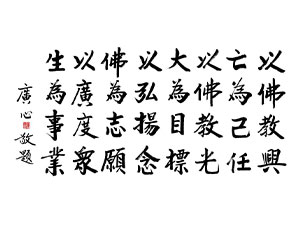 以佛教興
亡為己任
以佛教光
大為目標
以弘揚念
佛為志願
以廣度眾
生為事業
廣心敬題